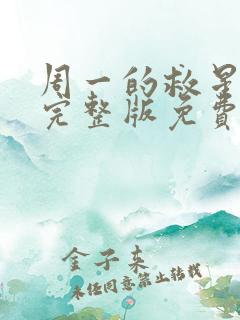 周一的救星
完整版免费
金子来
未经同意禁止转载